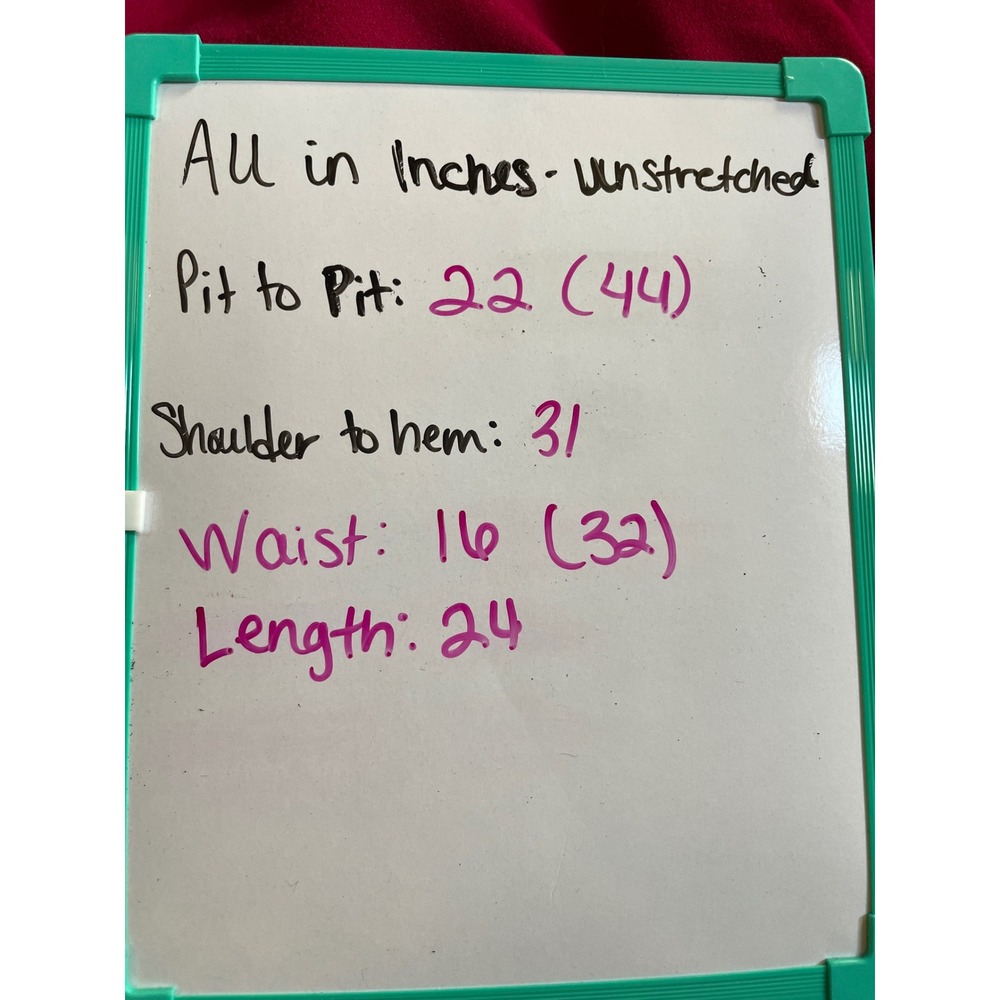 All in Inches - Unstretched
Pit to Pit: 22 (44)
Shoulder to hem: 31
Waist: 16 (32)
Length: 24